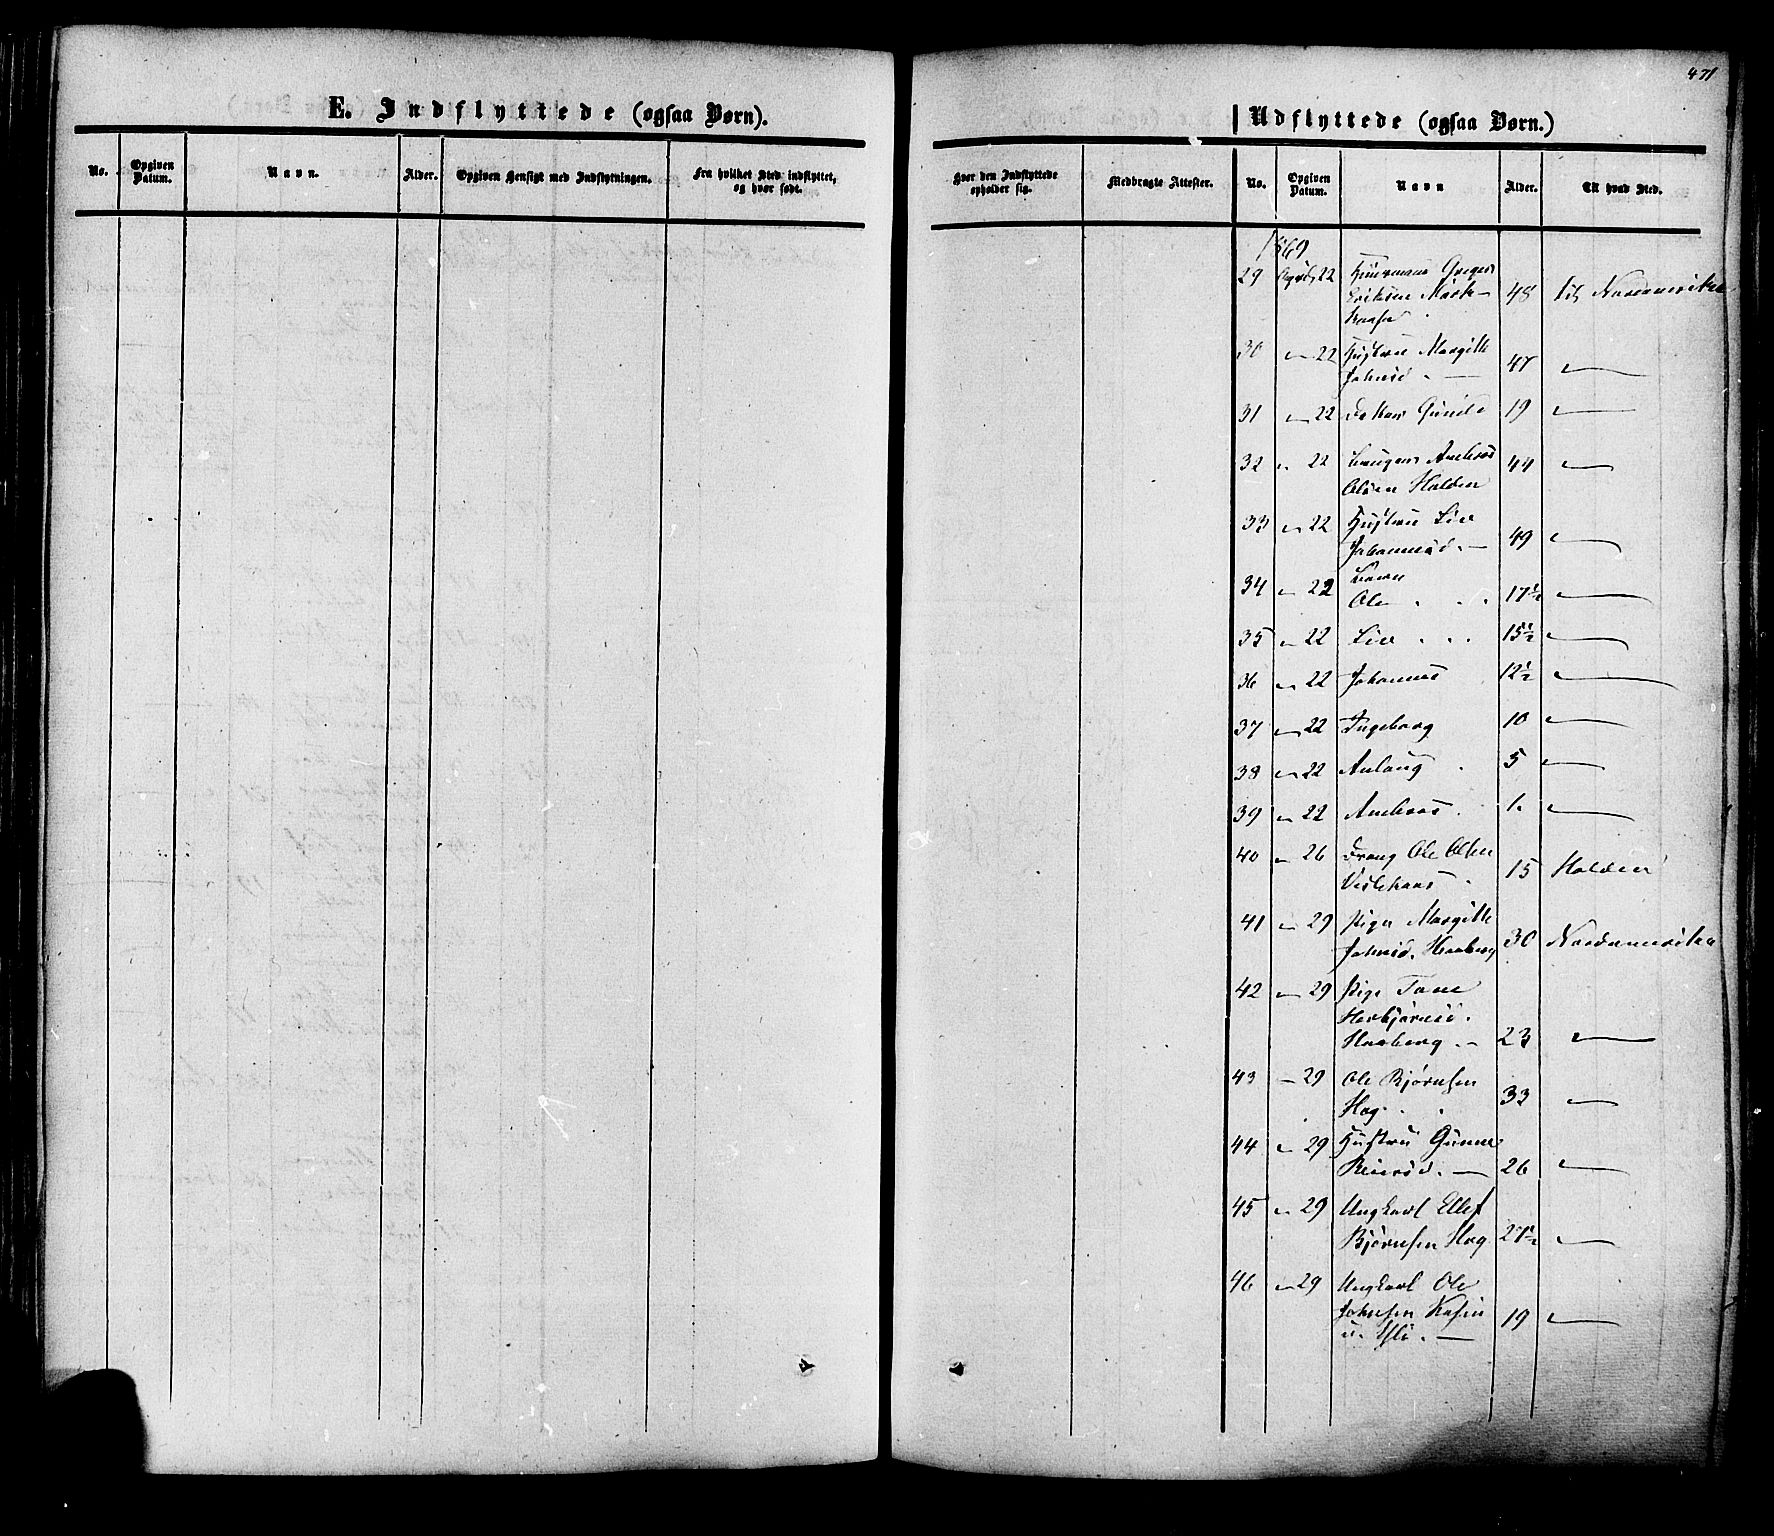 471
E. Indflyttede (ogsaa Børn).
Udflyttede (ogsaa Børn.)
No.
Opgiven Datum.
Navn.
Alder.
Opgiven Hensigt med Indflytningen.
Fra hvilket Sted indflyttet, og hvor født.
Hvor den Indflyttede opholder sig.
Medbragte Attester.
No.
Opgiven Datum.
Navn
Alder.
Til hvad Sted.
1869
29 April 22 Huusmand Gregar
Eriksen 48 til Nordamerika
30 - 22 Hustru Margith
Johnsd. - 47 -
31 - 22 Datter Gunild 19 -
32 - 22 Ambros 44 -
Olsen Holden
33 - 22 Hustru Liv
Johannesd. - 49 -
34 - 22 Børn
Ole 17½ -
35 - 22 Liv 15½ -
36 - 22 Johannes 12½ -
37 - 22 Ingeborg 10 -
38 - 22 Aslaug 5 -
39 - 22 Ambros 1. -
40 - 26 Dreng Ole Olsen
15 Holden
41 - 29 Pige Margith
Johnsd. Haaberg 30 Nordamerika
42 - 29 Pige Tone
Herbjørnsd.
Haaberg - 23 -
43 - 29 Ole Bjørnsen
Hag 33 -
44 - 29 Hustru Gunne
- 26 -
45 - 29 Ungkarl Ellef
Bjørnsen Hag 21½ -
46 - 29 Ungkarl Ole
Johnsen
u. - 19 -